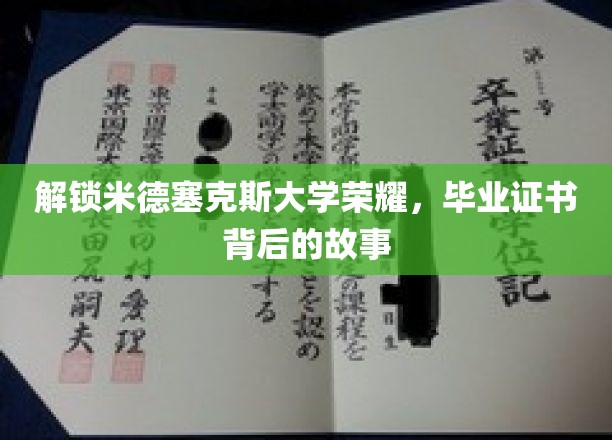 解锁米德塞克斯大学荣耀，毕业证书
背后的故事
第 号
卒業証 学位記
本学商学部 定の課程を
修めて本学 ことを認め
学士(商学)の する
平成
東京国際大 田村愛理
東京国際大 長田尻嗣夫